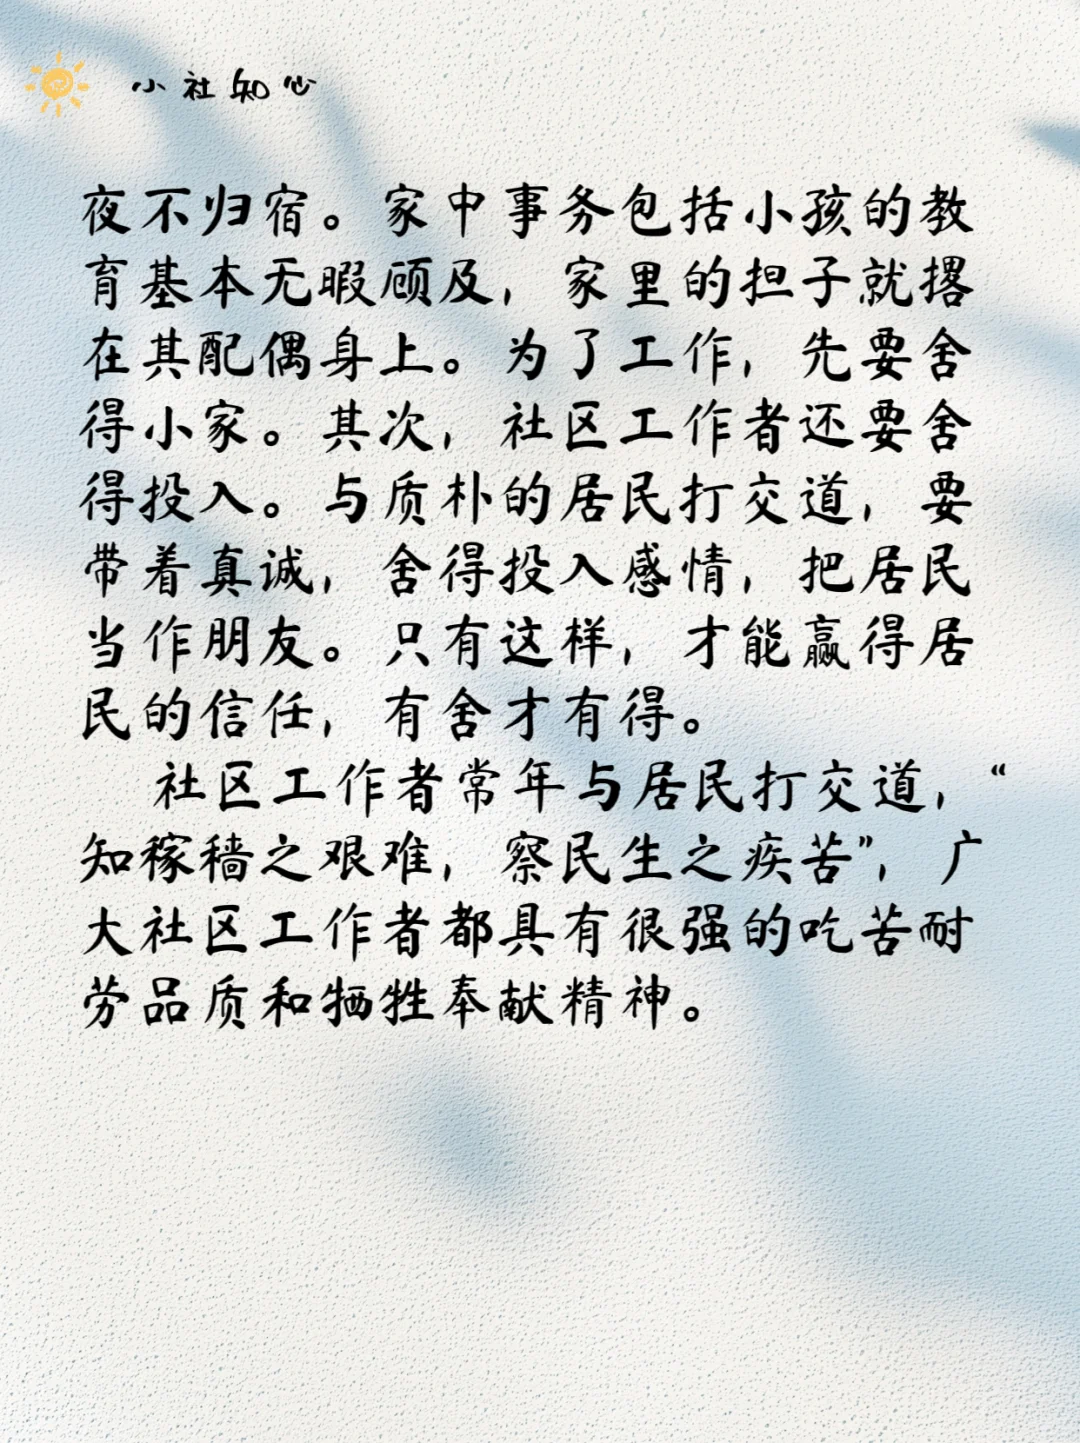 小社知心
夜不归宿。家中事务包括小孩的教
育基本无暇顾及，家里的担子就撂
在其配偶身上。为了工作，先要舍
得小家。其次，社区工作者还要舍
得投入。与质朴的居民打交道，要
带着真诚，舍得投入感情，把居民
当作朋友。只有这样，才能赢得居
民的信任，有舍才有得。
社区工作者常年与居民打交道，“
知稼穑之艰难，察民生之疾苦”，广
大社区工作者都具有很强的吃苦耐
劳品质和牺牲奉献精神。